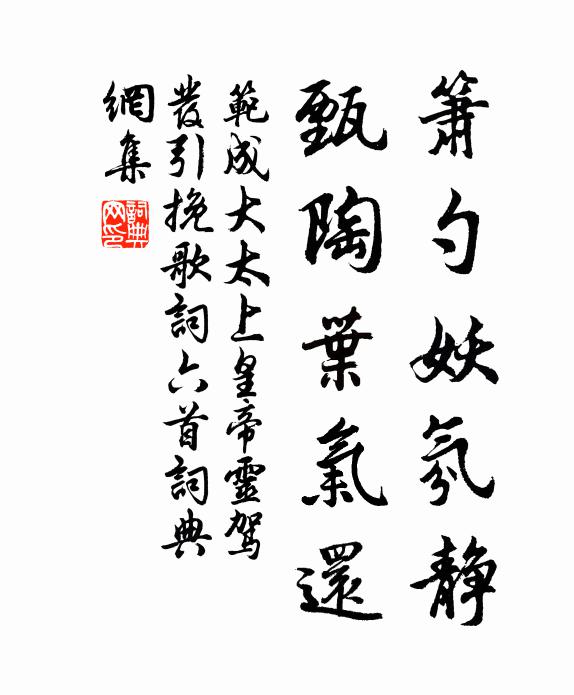 箫勺妖氛静
甄陶葉氣還
範成大太上皇帝靈駕
發引挽歌詞六首詞典
網集
詞典
网印